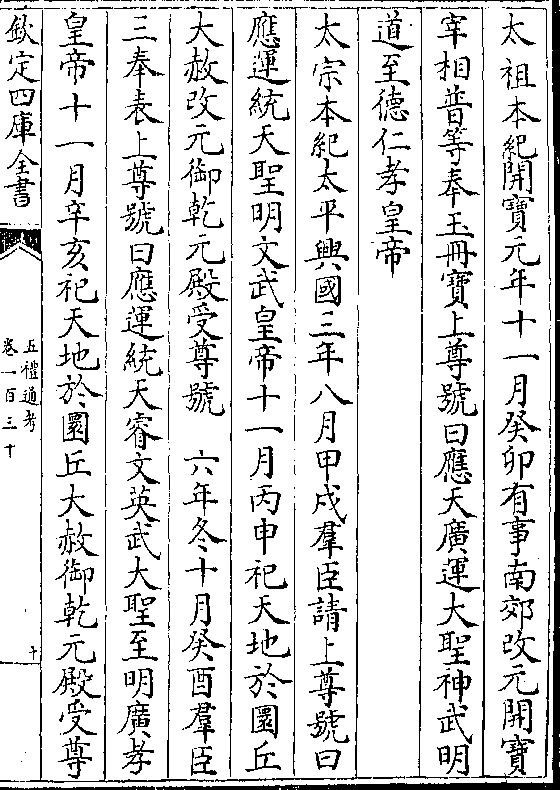 太祖本紀開寶元年十一月癸卯有事南郊改元開寶
宰相普等奉玉冊寶上尊號曰應天廣運大聖神武明
道至德仁孝皇帝
太宗本紀太平興國三年八月甲戌羣臣請上尊號曰
應運統天聖明文武皇帝十一月丙申祀天地於圜丘
大赦改元御乾元殿受尊號　六年冬十月癸酉羣臣
三奉表上尊號曰應運統天睿文英武大聖至明廣孝
皇帝十一月辛亥祀天地於圜丘大赦御乾元殿受尊
欽定四庫全書
五禮通考
卷一百三十
十